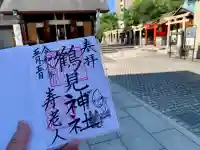 奉拝
鶴見神社
寿老人
令和
五月五日